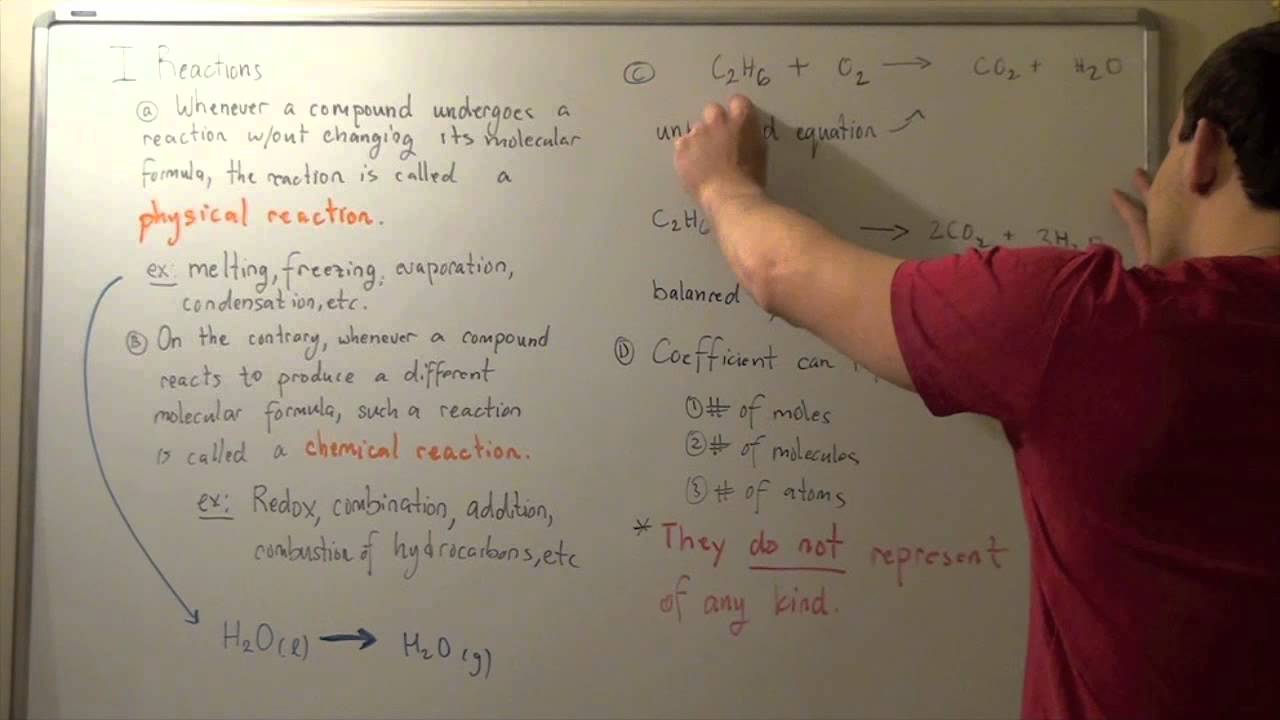 I Reactions
ⓐ Whenever a compound undergoes a
reaction w/out changing its molecular
formula, the reaction is called a
physical reaction.
ex: melting, freezing, evaporation,
condensation, etc.
Ⓑ On the contrary, whenever a compound
reacts to produce a different
molecular formula, such a reaction
is called a chemical reaction.
ex: Redox, combination, addition,
combustion of hydrocarbons, etc
H₂O(l) → H₂O(g)
Ⓒ C₂H₆ + O₂ → CO₂ + H₂O
equation
C₂H₆ → 2CO₂ + 3H₂O
balanced
Ⓓ Coefficient can
① # of moles
② # of molecules
③ # of atoms
* They do not represent
of any kind.